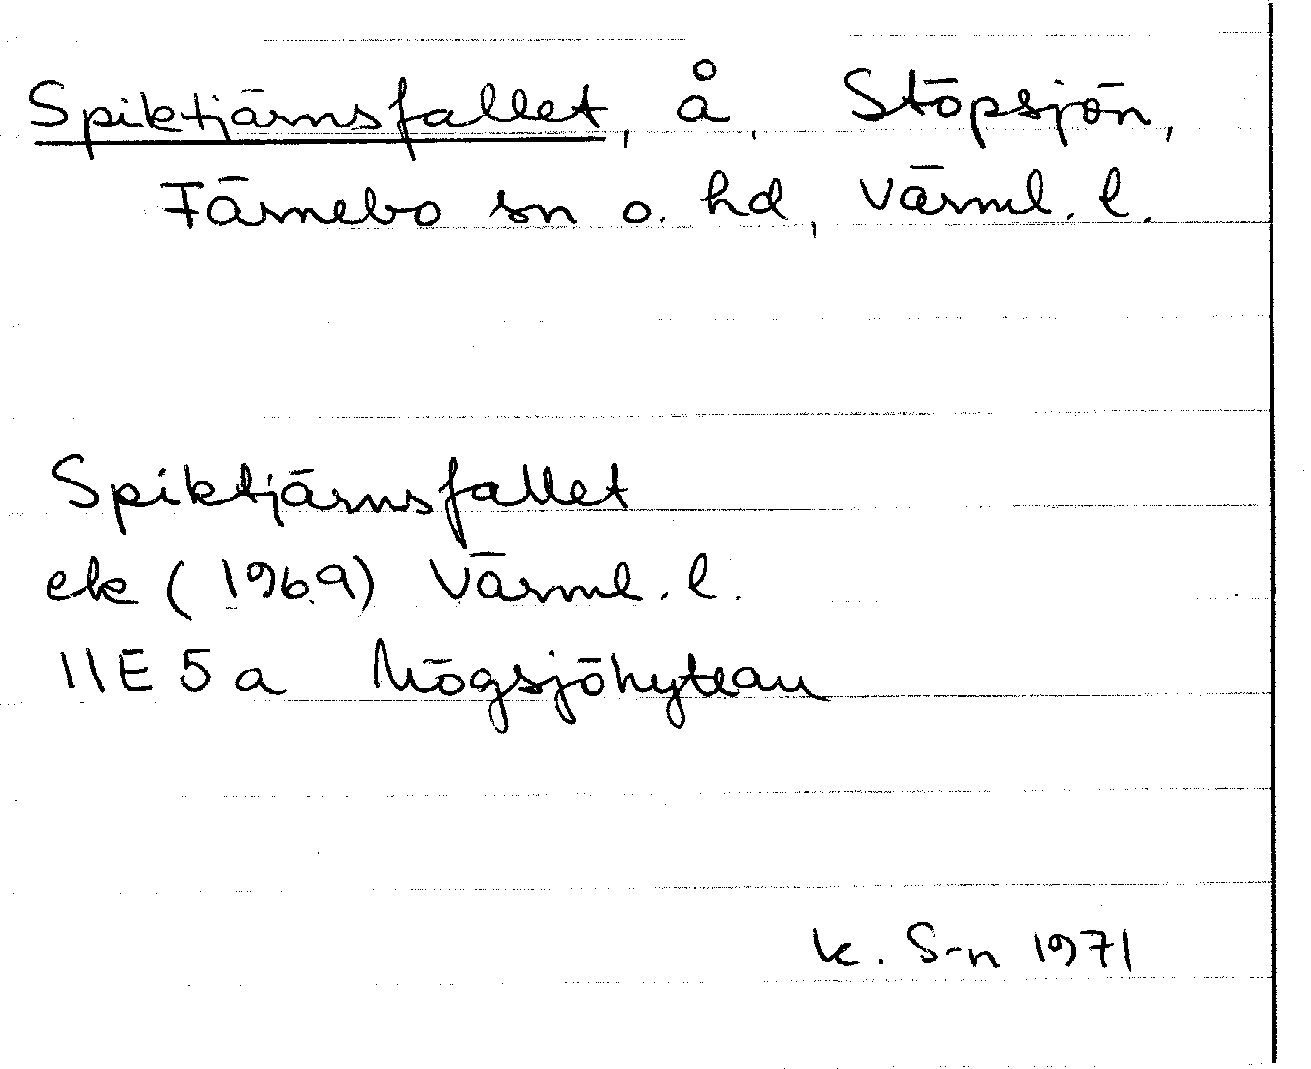 Spiktjärnsfallet, å, Stöpsjön,
Färnebo sn o. hd, Värml. l.
Spiktjärnsfallet
ek (1969) Värml. l.
11E 5a Högsjöhyttan
k. S-n 1971